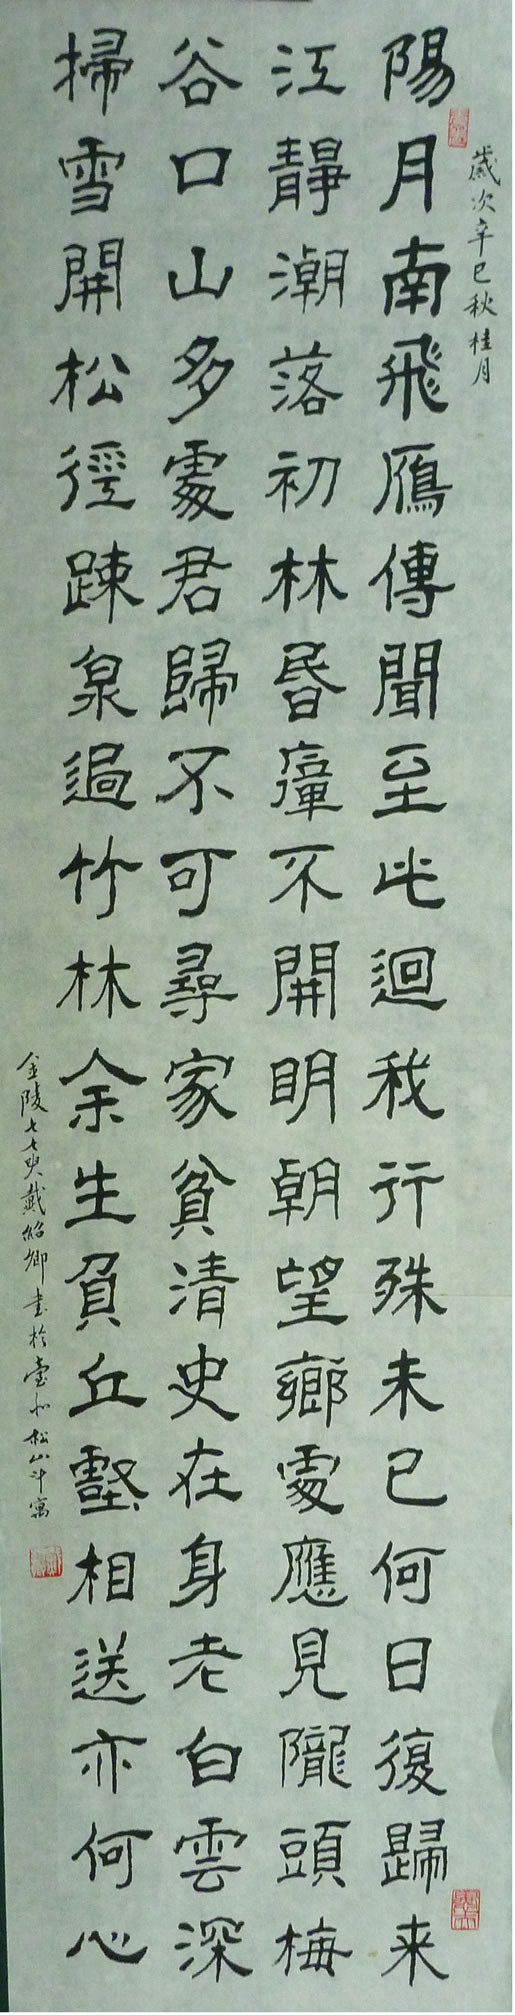 歲次辛巳秋桂月
陽月南飛鴈傳聞至此迴我行殊未已何日復歸来
江靜潮落初林昏瘴不開明朝望鄉處應見隴頭梅
谷口山多處君歸不可尋家貧清史在身老白雲深
掃雪開松徑踈泉過竹林余生負丘壑相送亦何心
金陵七七叟戴紹卿書於臺北松山斗寓